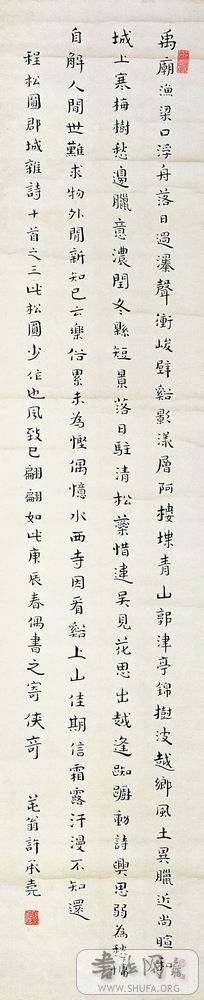 禹廟漁梁口浮舟落日過灘聲衝峻壁谿影漾層阿樓堞青山郭津亭錦樹波越鄉風土異臘近尚暄和
城上寒梅樹愁邊臘意濃閏冬縣短景落日駐清松蘂惜連吳見花思出越逢踟躕動詩興思弱為愁慵
自解人間世難求物外閒新知已云樂俗累未為慳偶憶水西寺因看谿上山佳期信霜露汗漫不知還
程松圓郡城雜詩十首之三此松圓少作也風致已翩翩如此庚辰春偶書之寄俠奇
芚翁許承堯
書法网
WWW.SHUFA.ORG